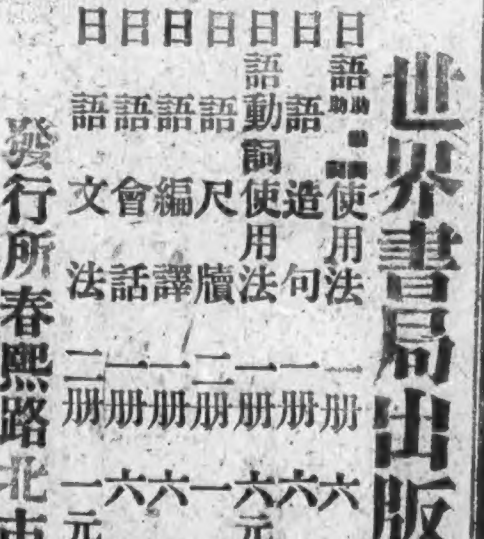 世界書局出版
日語助動詞使用法 一册 六
日語造句 一册 六
日語動詞使用法 一册 六元
日語尺牘 二册 一
日語編譯 一册 六
日語會話 一册 六
日語文法 二册 一元
發行所春熙路北